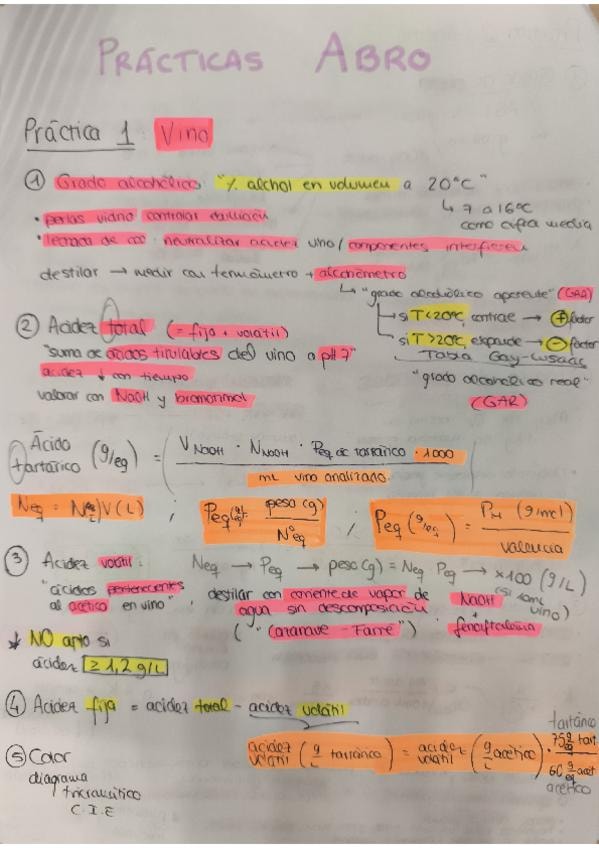 PRÁCTICAS ABRO
Práctica 1: Vino
① Grado alcohólico: "% alchol en volumen a 20°C"
↳ 7 a 16°C
como cifra media
• perlas vidrio controlar ebullición
• lechada de cal: neutralizar acidez vino / componentes interfieren
destilar → medir con termómetro + alcohómetro
↳ "grado alcohólico aparente" (GAA)
→ si T<20°C, contrae → + factor
→ si T>20°C, expande → - factor
Tabla Gay-Lussac
"grado alcohólico real"
(GAR)
② Acidez total (= fija + volátil)
"suma de ácidos titulables del vino a pH 7"
acidez ↓ con tiempo
valorar con NaOH y bromotimol
Ácido tartárico (g/eq) = ( V NaOH · N NaOH · Peq ác tartárico · 1000
mL vino analizado. )
Neq = N(eq/L) V(L) ; Peq(g/eq) = peso (g) / Nºeq ; Peq (g/eq) = PM (g/mol) / valencia
③ Acidez volátil: Neq → Peq → peso(g) = Neq · Peq → x100 (g/L)
"ácidos pertenecientes
al acético en vino"
destilar con corriente de vapor de
agua sin descomposición
("Cazenave - Ferré")
NaOH
+
fenolftaleína
vino)
↓ NO apto si
acidez ≥ 1,2 g/L
④ Acidez fija = acidez total - acidez volátil
acidez volátil (g/L tartárico) = acidez volátil (g/L acético) · 75 g/eq tart. / 60 g/eq acét
tartárico
acético
⑤ Color
diagrama
tricromático
C.I.E